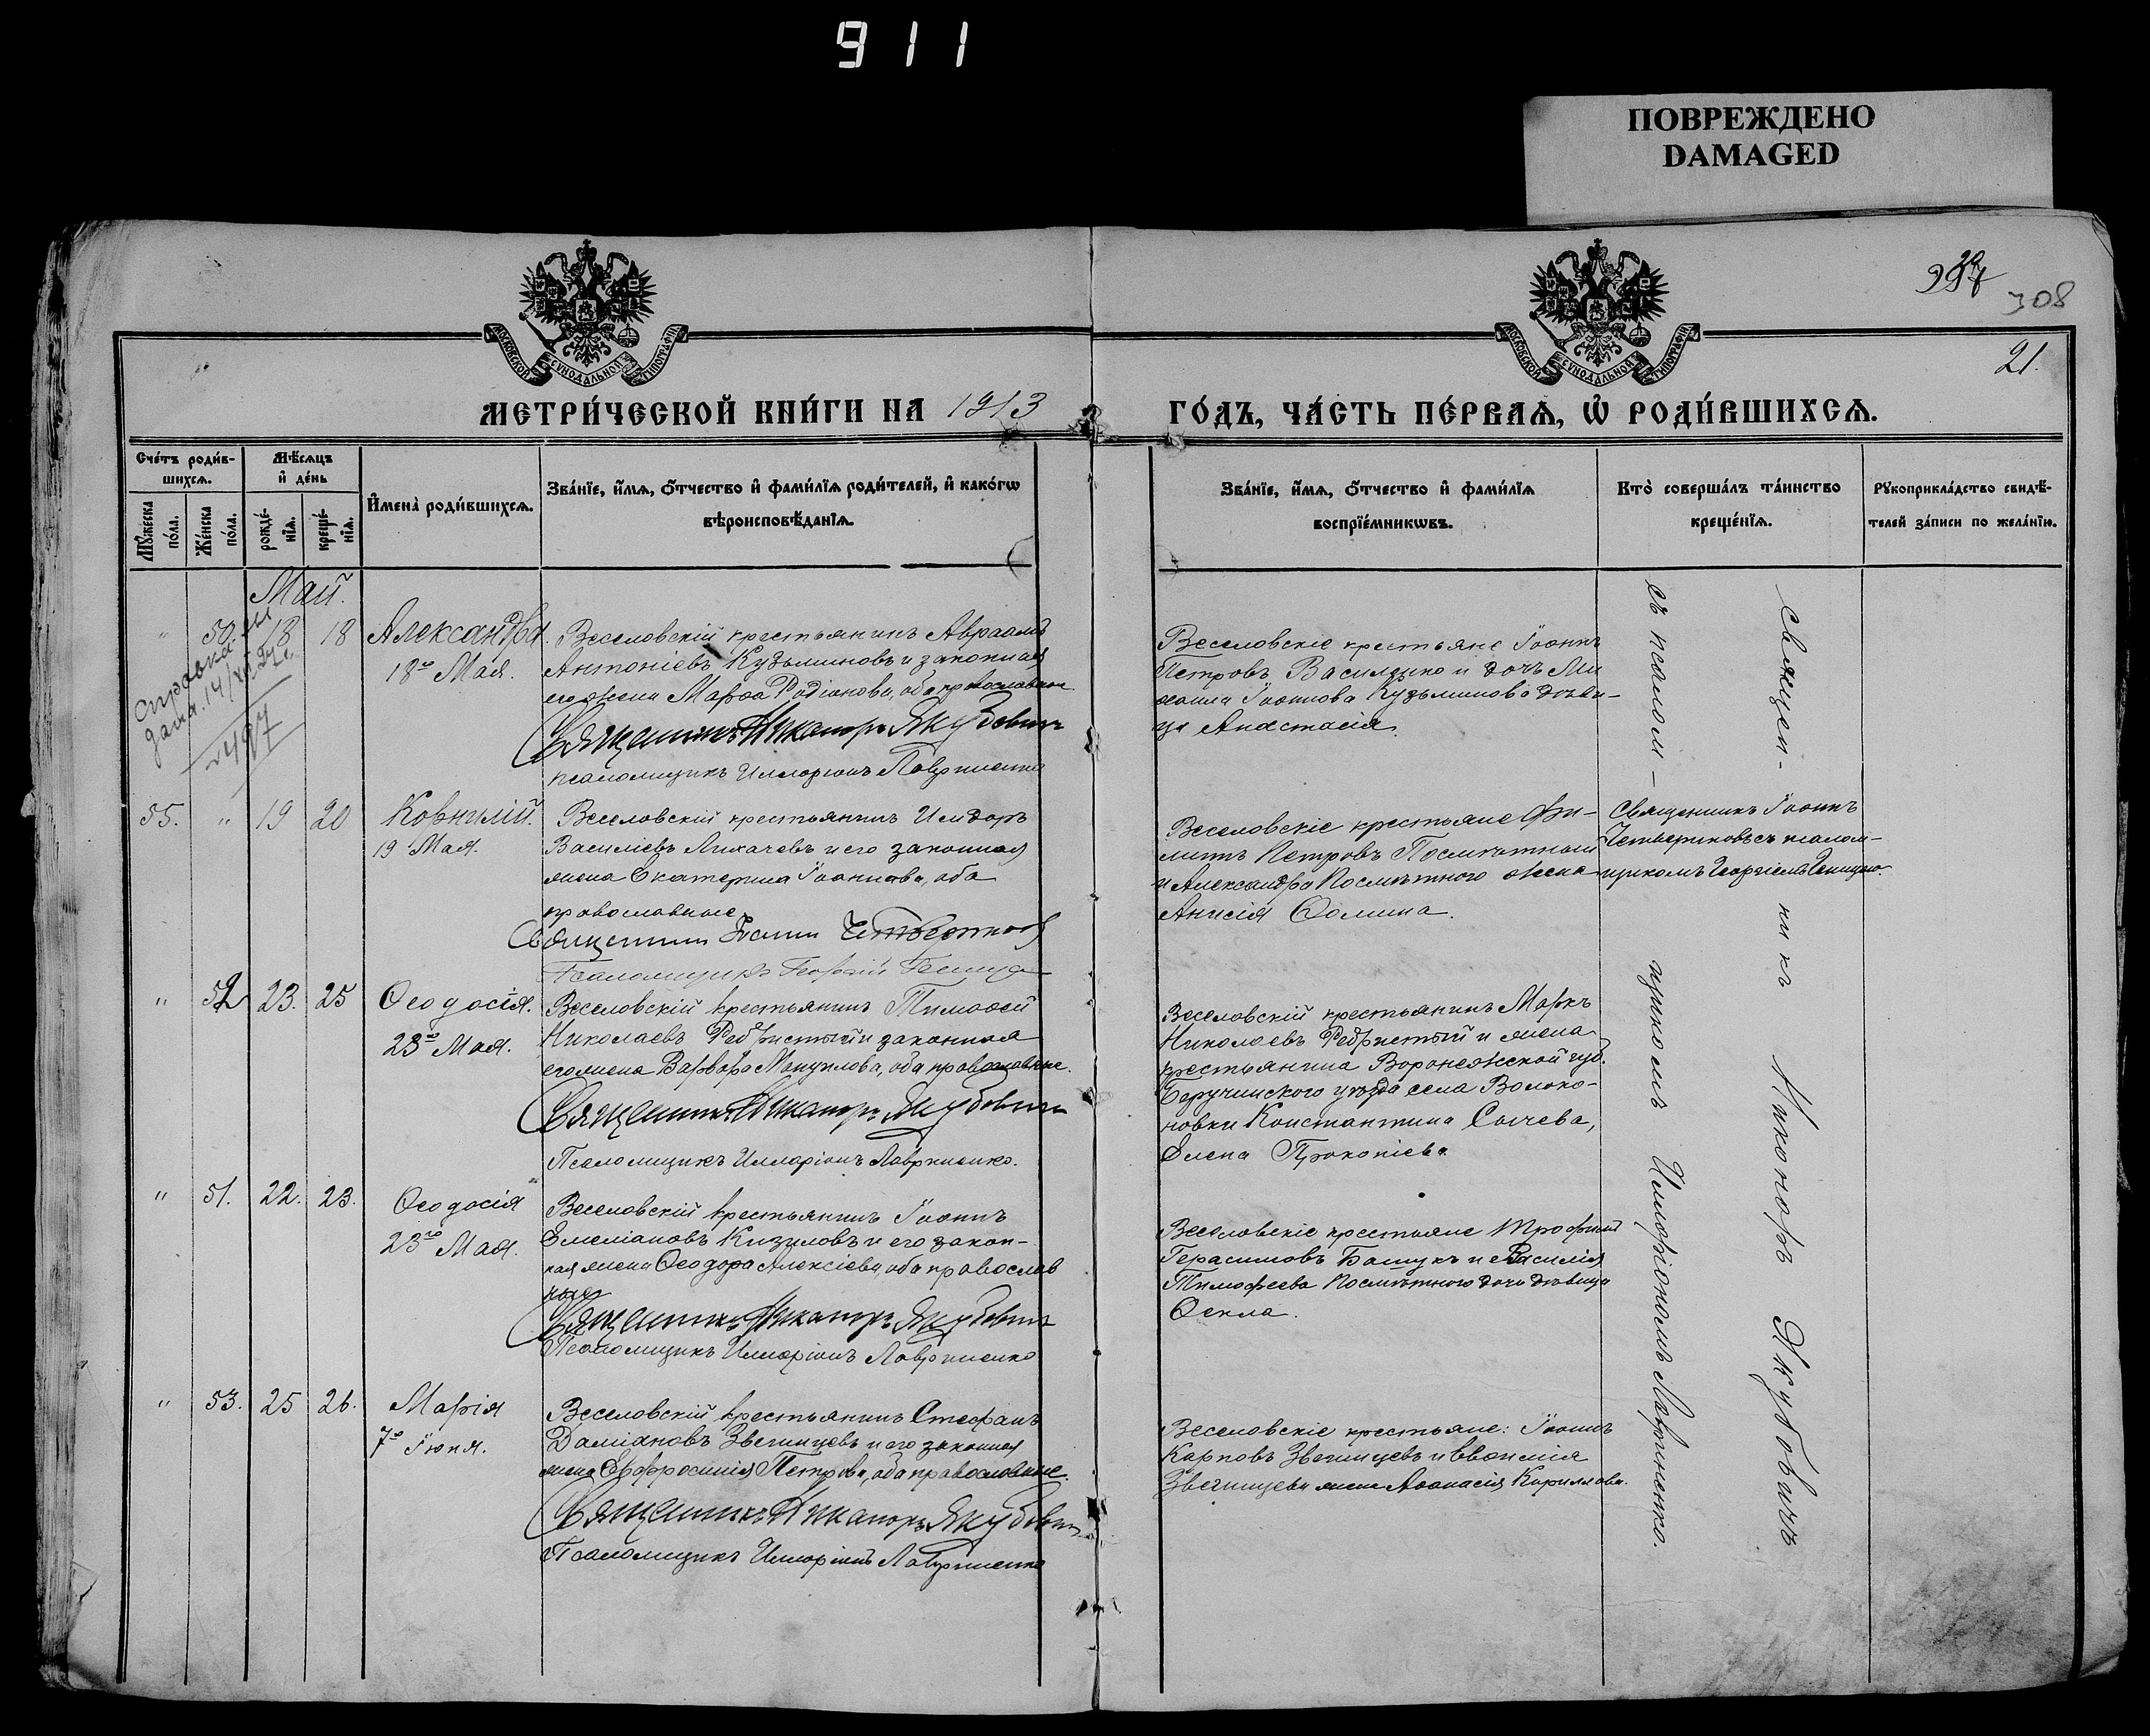 911
ПОВРЕЖДЕНО
DAMAGED
308
21.
МОСКОВСКОЙ СѴНОДАЛЬНОЙ ТИПОГРАФІИ
МОСКОВСКОЙ СѴНОДАЛЬНОЙ ТИПОГРАФІИ
МЕТРИ́ЧЕСКОЙ КНИ́ГИ НА 1913
ГО́ДЪ, ЧА́СТЬ ПЕ́РВАѦ, Ѡ҆ РОДИ́ВШИХСѦ.
Сче́тъ роди́в-
шихсѧ.
Мꙋ́жеска по́ла.
Же́нска по́ла.
Мѣ́сѧцъ
и҆ де́нь
рожде́-
нїѧ.
креще́-
нїѧ.
И҆мена̀ роди́вшихсѧ.
Зва́нїе, и҆́мѧ, ѻ҆́тчество и҆ фами́лїѧ роди́телей, и҆ како́гѡ
вѣроисповѣ́данїѧ.
Зва́нїе, и҆́мѧ, ѻ҆́тчество и҆ фами́лїѧ
воспрїе́мникѡвъ.
Кто̀ соверша́лъ та́инство
креще́нїѧ.
Рꙋкоприкла́дство свидѣ́-
телей за́писи по жела́нїю.
Май.
" 50. 18 18 Александра.
18го Мая.
Справка
дана. 14/
497
Веселовскій крестьянинъ Авраамъ
Антоніевъ Кузьминовъ и законная
его жена Марѳа Родіонова, оба православные.
Священникъ Никаноръ Якубовичъ
псаломщикъ Илларіонъ Лавриненко
Веселовскіе крестьяне Іоаннъ
Петровъ Василенко и дочь Ми
хаила Іоаннова Кузьминова дѣви-
ца Анастасія.
55. " 19 20 Корнилій.
19 Мая.
Веселовскій крестьянинъ Исидоръ
Василіевъ Лихачевъ и его законная
жена Екатерина Іоаннова, оба
православные
Священникъ Іоаннъ Четвериковъ
Псаломщикъ Георгій
Веселовскіе крестьяне Фи-
липпъ Петровъ Посмитный
и Александра Посмѣтного жена
Анисія Ѳомина.
Священникъ Іоаннъ
Четвериковъ съ псалом-
щикомъ Георгіемъ
" 52 23. 25 Ѳеодосія.
23го Мая.
Веселовскій крестьянинъ Тимоѳей
Николаевъ Ребристый и законная
его жена Варвара Мануилова, оба православные.
Священникъ Никаноръ Якубовичъ
Псаломщикъ Илларіонъ Лавриненко.
Веселовскій крестьянинъ Маркъ
Николаевъ Ребристый и жена
крестьянина Воронежской губ.
Бирючинского уѣзда села Волоко-
новки Константина Сычева,
Елена Прокопіева.
" 51. 22. 23. Ѳеодосія
23го Мая.
Веселовскій крестьянинъ Іоаннъ
Емеліановъ Кизиловъ и его закон-
ная жена Ѳеодора Алексіева, оба православ
ные
Священникъ Никаноръ Якубовичъ
Псаломщикъ Илларіонъ Лавриненко
Веселовскіе крестьяне Трофимъ
Герасимовъ Башукъ и Василія
Тимофеева Посмѣтного дочь дѣвица
Ѳекла.
" 53. 25 26. Марія
7го Іюня.
Веселовскій крестьянинъ Стефанъ
Даміановъ Звегинцевъ и его законная
жена Евфросинія Петрова, оба православные.
Священникъ Никаноръ Якубовичъ
Псаломщикъ Илларіонъ Лавриненко
Веселовскіе крестьяне: Іоаннъ
Карповъ Звегинцевъ и
Звегинцева жена Аѳанасія Кириллова.
Священ-
никъ Никаноръ Якубовичъ
съ псалом-
щикомъ Илларіономъ Лавриненко.